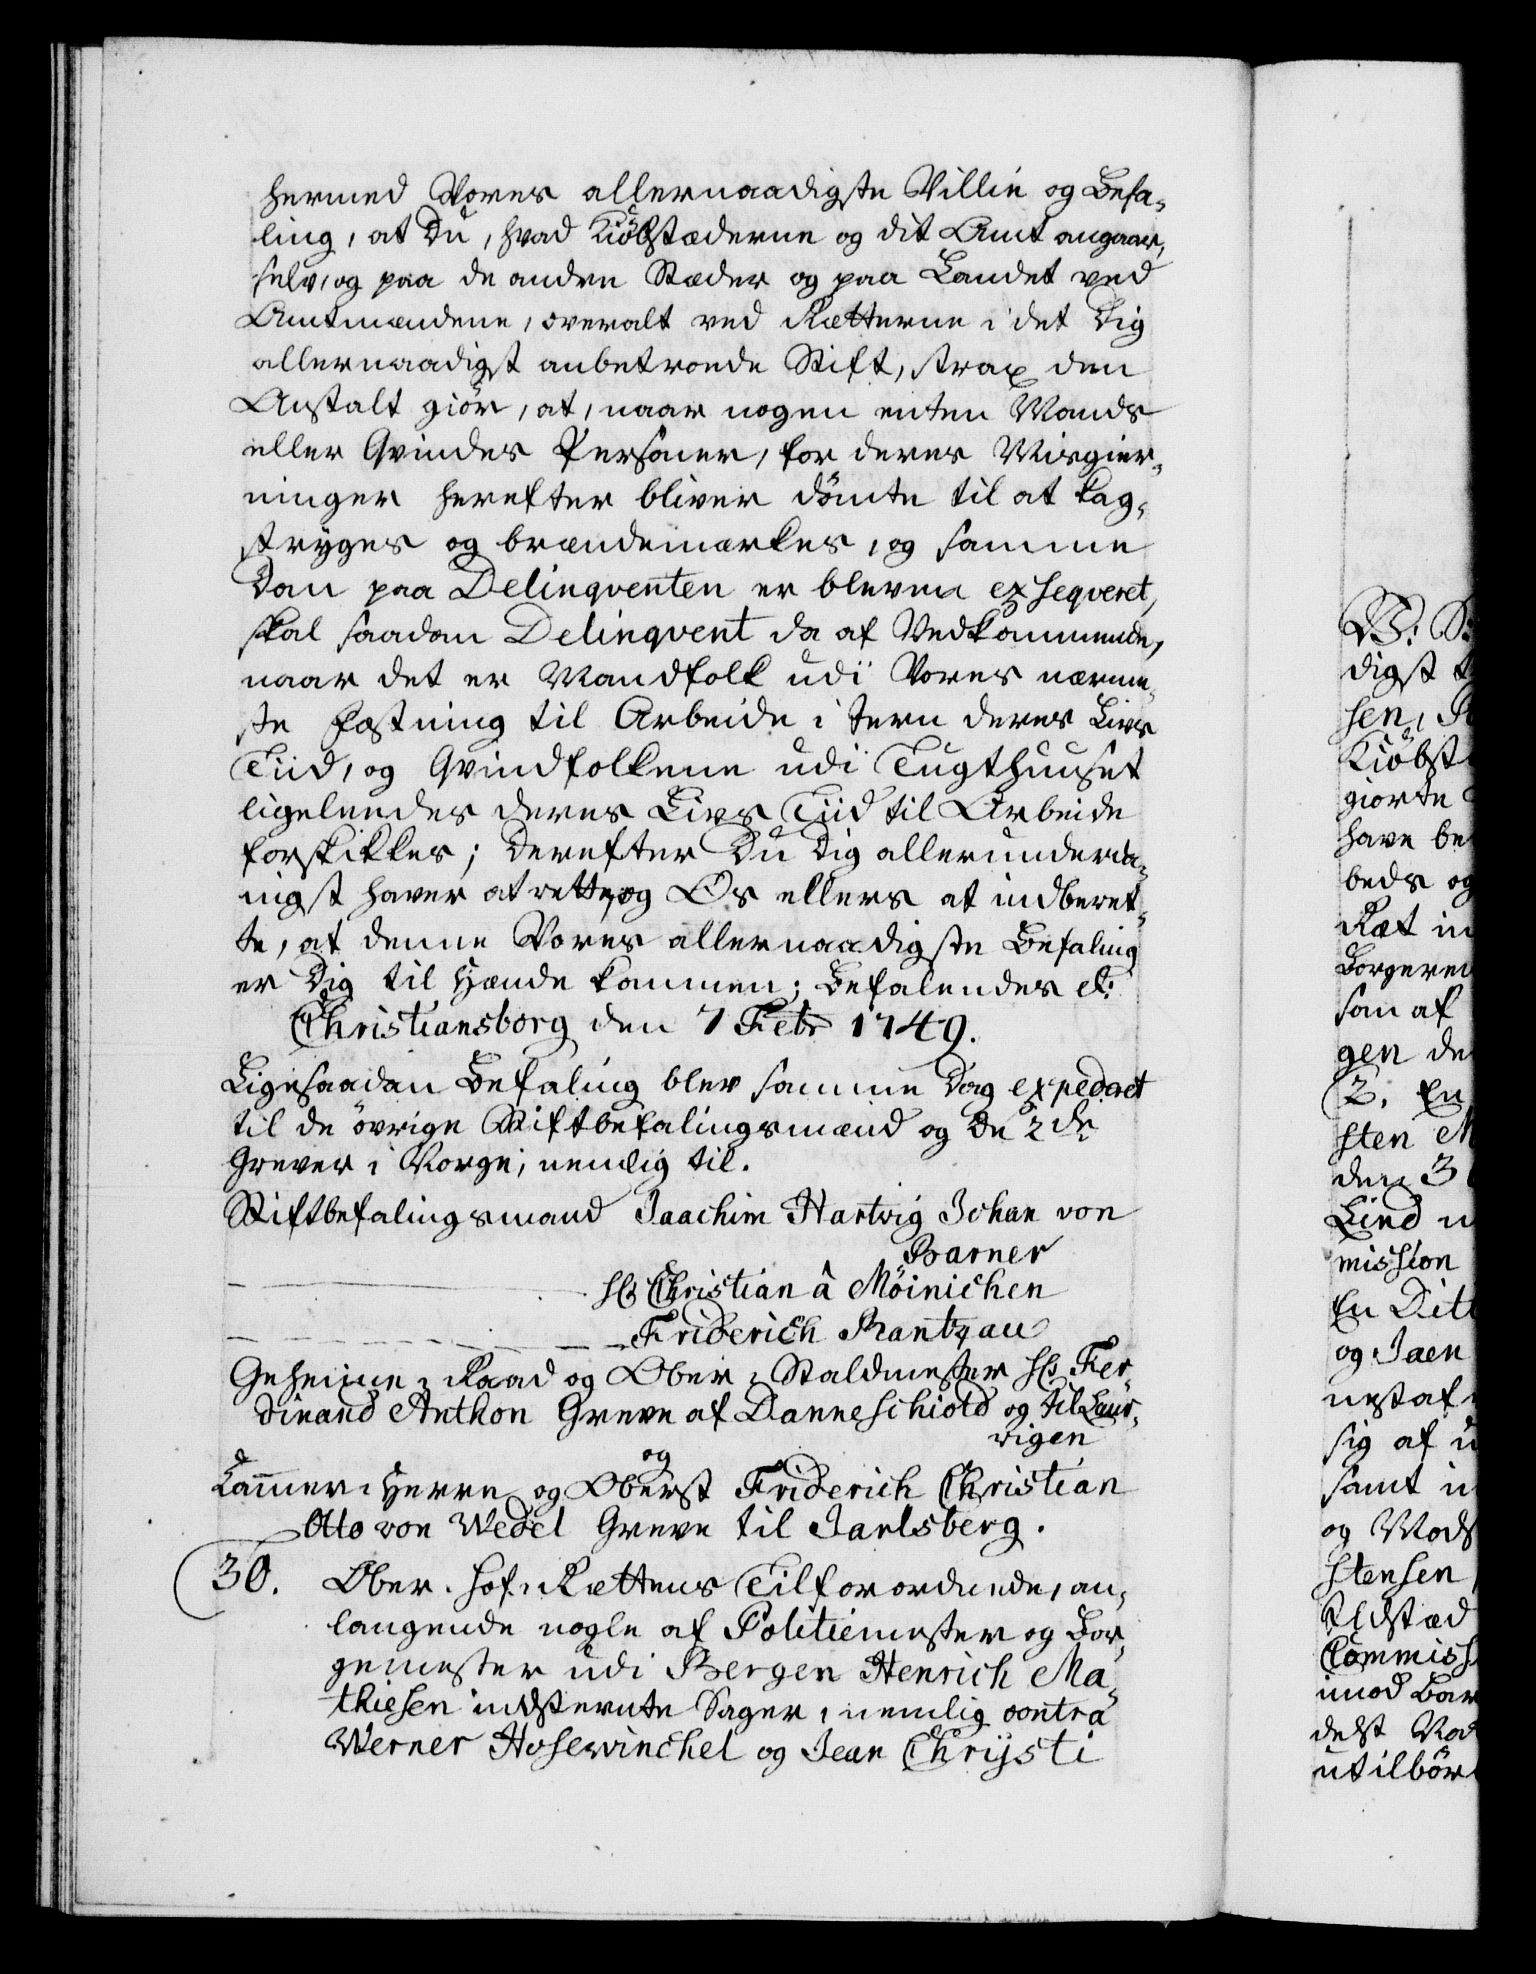 hermed Vores allernaadigste Villie og Befa-
ling, at Du, hvad Kiöbstæderne og dit Amt angaaer,
selv, og paa de andre Stæder og paa Landet ved
Amtmændene, overalt ved Rætterne i det Dig
allernaadigst anbetroede Stift, strax den
Anstalt giör, at, naar nogen enten Mands
eller Qvindes Persohner, for deres Misgier-
ninger herefter bliver dömte til at kag-
stryges og brændemærkes, og samme
Dom paa Delinqventen er bleven exseqveret,
skal saadan Delinqvent da af Vedkommende,
naar det er Mandfolk udi Vores nærme-
ste Fæstning til Arbeide i Jern deres Livs
Tiid, og Qvindfolkene udi Tugthuuset
ligeleedes deres Livs Tiid til Arbeide
forskikkes; Derefter Du Dig allerunderda-
nigst haver at rette, og Os ellers at indberet-
te, at denne Vores allernaadigste Befaling
er Dig til Hænde kommen; Befalendes etc:
Christiansborg den 7 Febr 1749.
Ligesaadan Befaling blev samme Dag expederet
til de övrige Stiftbefalingsmænd og De 2de
Grever i Norge, nemlig til.
Stiftbefalingsmand Jaachim Hartvig Johan von
Barner
Hr Christian â Möinichen
Friderich Rantzau
Geheime-Raad og Ober-Staldmester Hr Fer-
dinand Anthon Greve af Danneschiold og til Laur-
wigen
og
Cammer-Herre og Oberst Friderich Christian
Otto von Wedel Greve til Jarlsberg.
30. Ober-Hof-Rættens Tilforordnede, an-
langende nogle af Politiemester og Bor-
gemester udi Bergen Henrich Ma-
thiesen indstevnte Sager, nemlig contra
Werner Hosewinchel og Jean Chrijsti
W: S:
digst t
sen,
Kiöbst
giorte
have be
beds og
Ræt in
Borgeren
som af
gen de
2. En
sten M
den 3
Lind u
mission
En Dit
og Jaen
nest af
sig af u
samt i
og Mods
stensen
Ildstæd
Commiss
imod Bar
delst Mod
utilbör